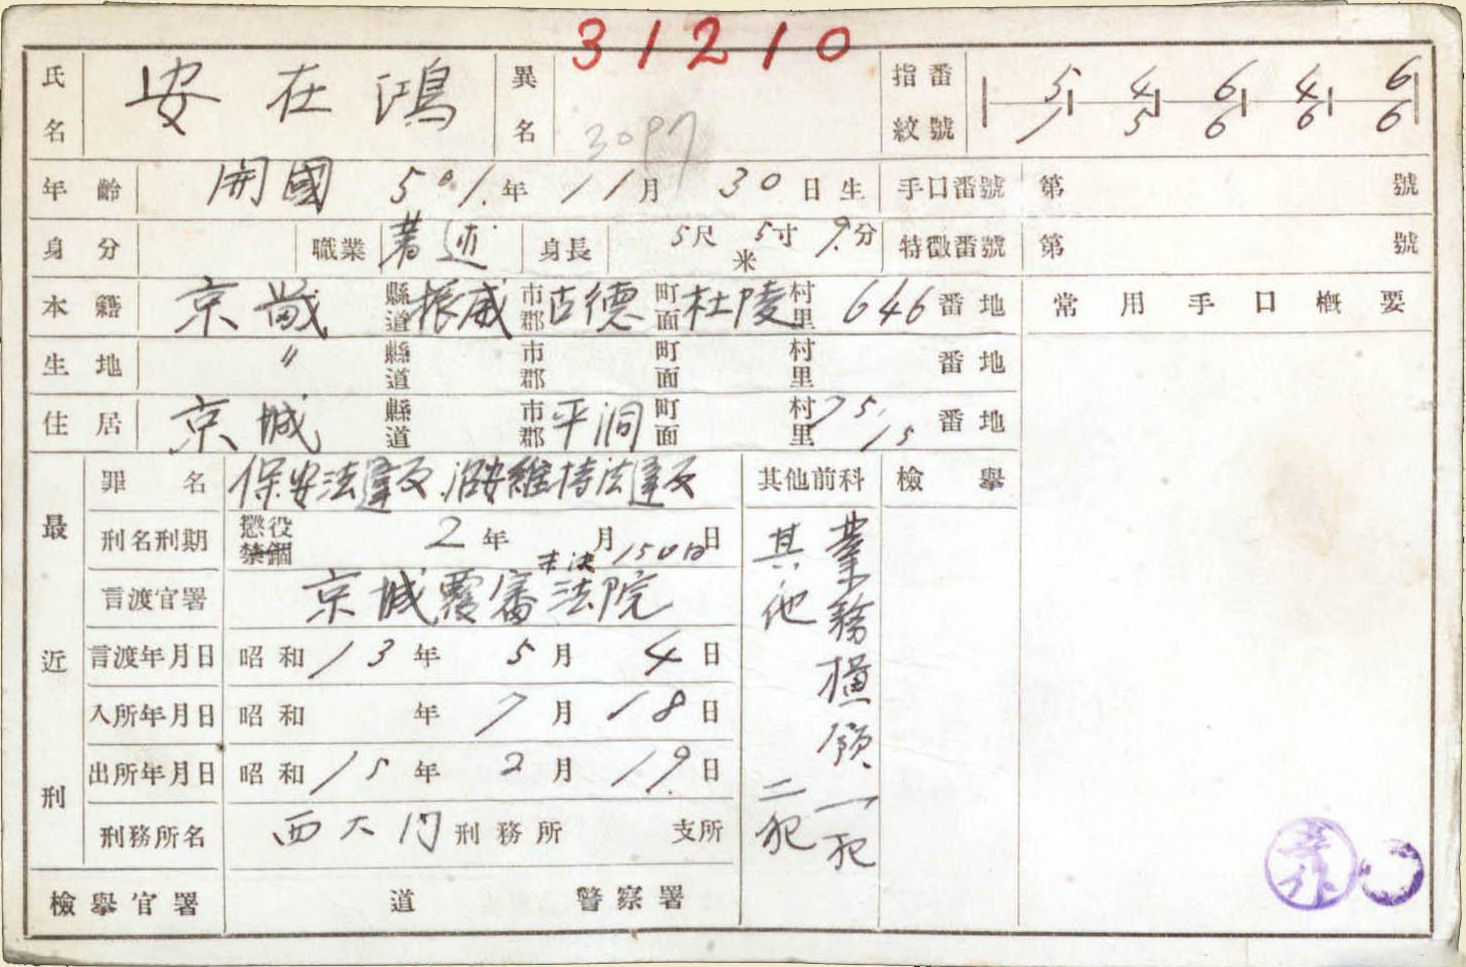 31210
氏名 安在鴻 異名 指紋番號 5 4 6 4 6
1 5 6 6 6
3097
年齡 開國 501年 11月 30日生 手口番號 第 號
身分 職業 著述 身長 5尺 5寸 9分 米 特徵番號 第 號
本籍 京畿 縣道 振威 市郡 古德 町面 杜陵 村里 646 番地 常用手口槪要
生地 〃 縣道 市郡 町面 村里 番地
住居 京城 縣道 市郡 平洞 町面 村里 75/15 番地
最近刑 罪名 保安法違反 治安維持法違反 其他前科 檢擧
刑名刑期 懲役 禁錮 2年 月 日 未決150日
言渡官署 京城覆審法院
言渡年月日 昭和13年 5月 4日
入所年月日 昭和 年 7月 18日
出所年月日 昭和15年 2月 19日
刑務所名 西大門刑務所 支所
業務橫領一犯
其他二犯
檢擧官署 道 警察署